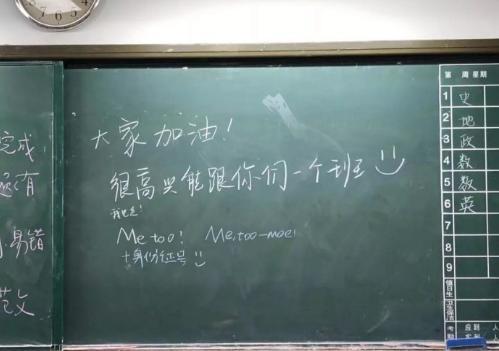 完成
有
易错
范文
大家加油！
很高兴能跟你们一个班
我也是！
Me too! Me, too~moe!
+身份证号
第 周 星期
1 史
2 地
3 政
4 数
5 数
6 英
7
8
9
值日生
考勤 应到 人